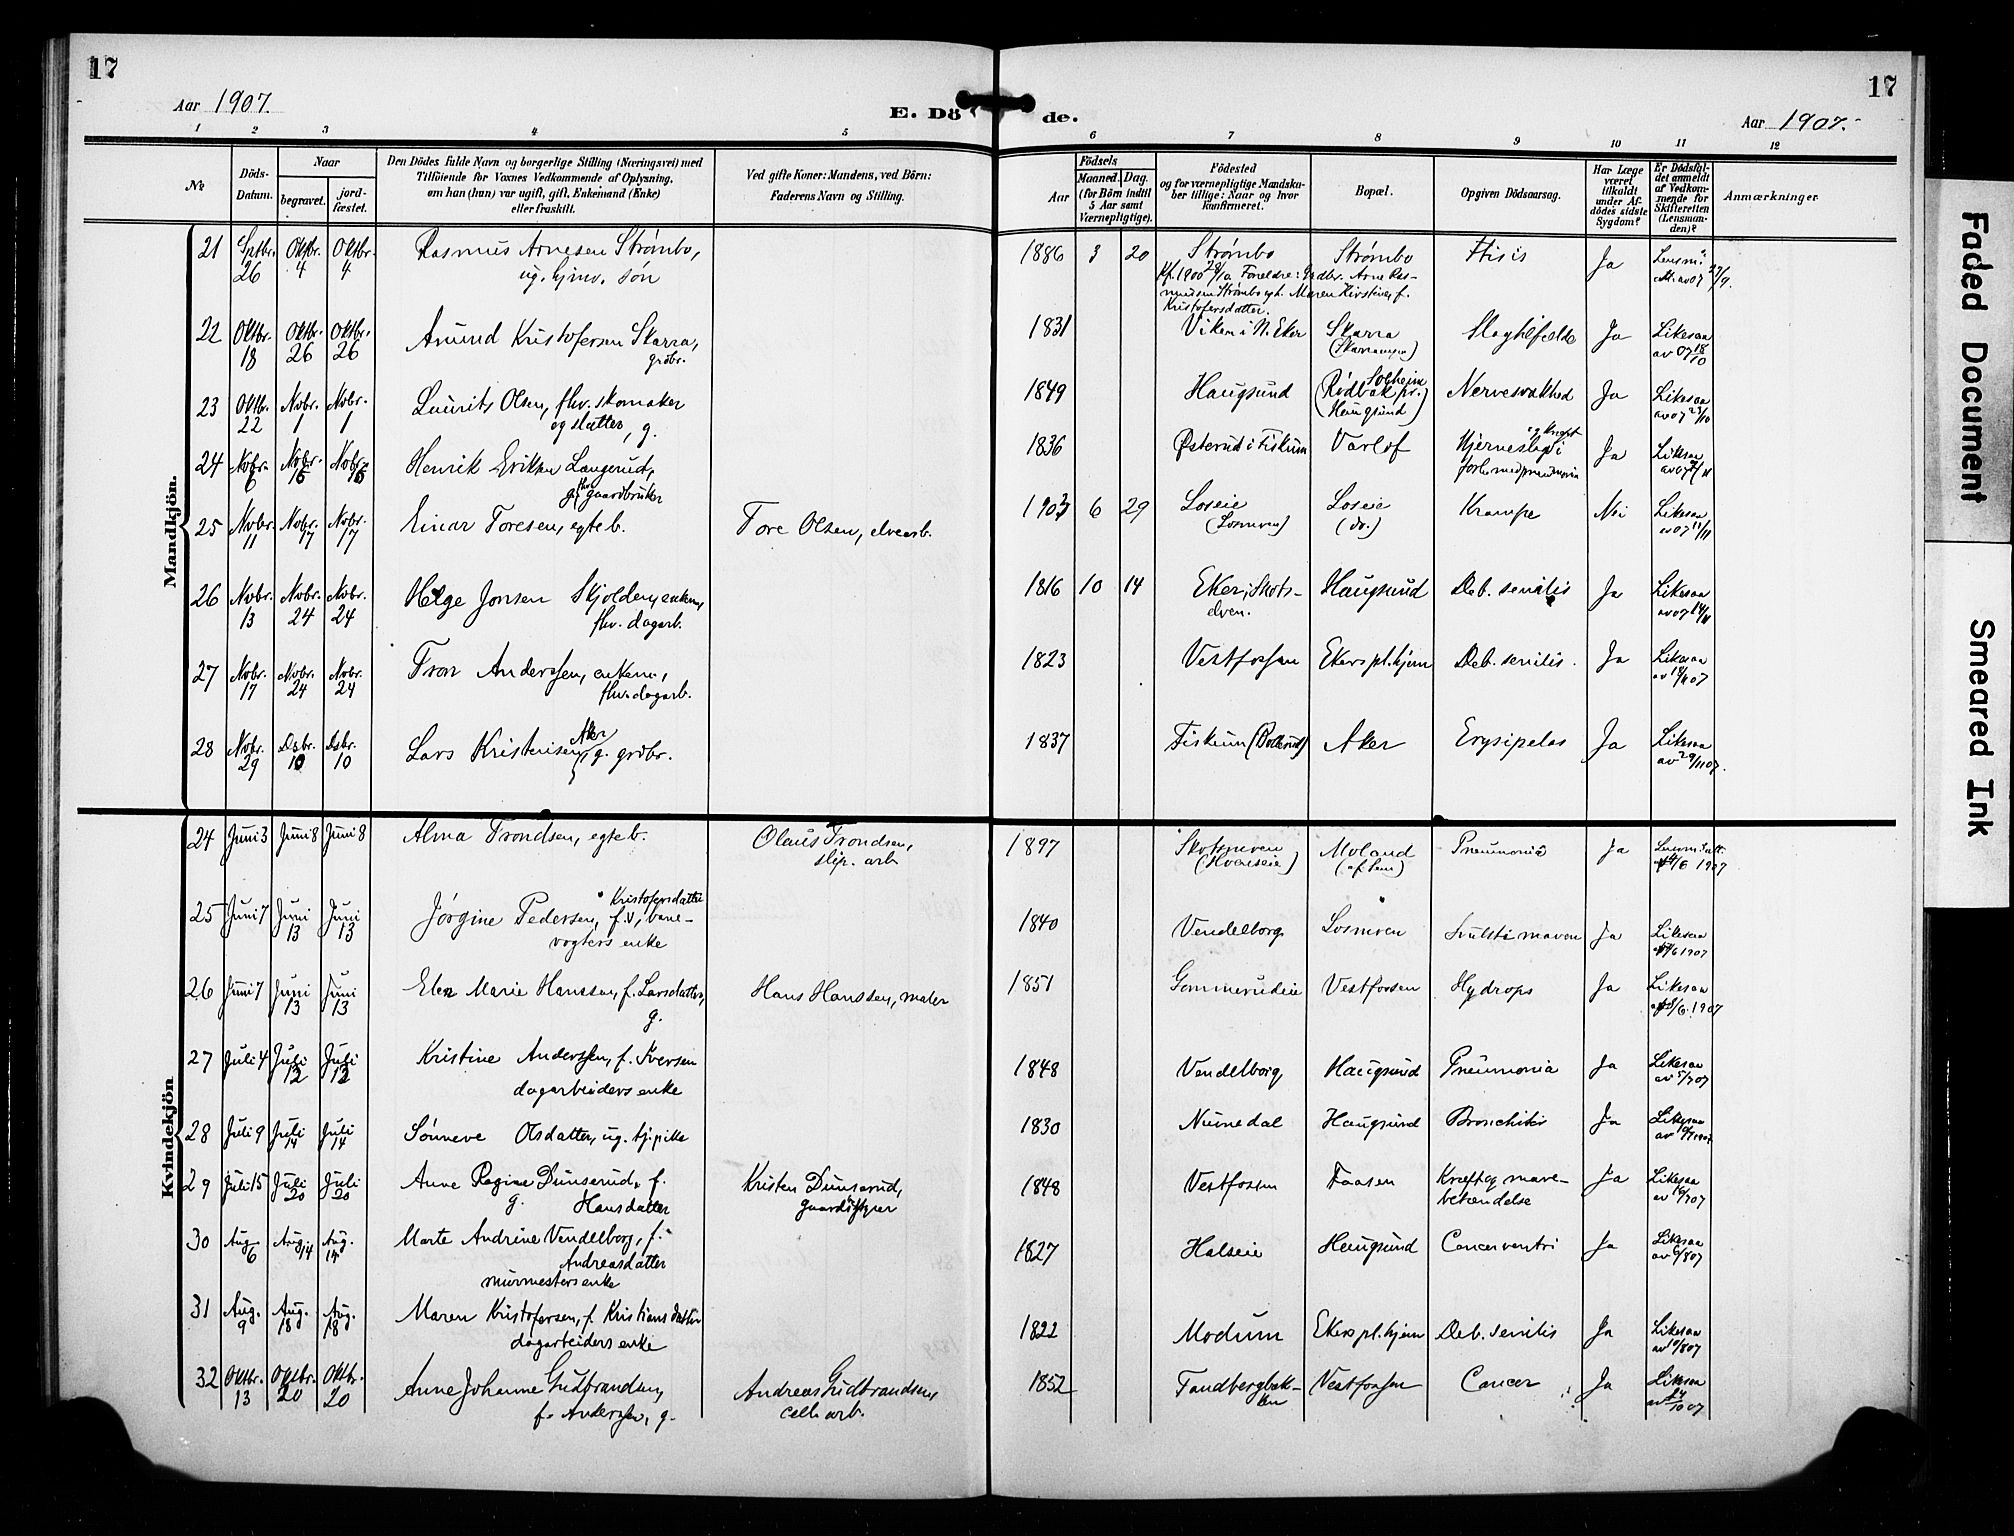 17
17
Aar 1907.
E. Dö de.
Aar 1907.
1 2 3 4 5 6 7 8 9 10 11 12
№
Döds-
Datum.
Naar
begravet.
jord-
fæstet.
Den Dödes fulde Navn og borgerlige Stilling (Næringsvei) med
Tilföiende for Voxnes Vedkommende af Oplysning,
om han (hun) var ugift, gift, Enkemand (Enke)
eller fraskilt.
Ved gifte Koner: Mandens, ved Börn:
Faderens Navn og Stilling.
Födsels
Aar
Maaned.
Dag.
(for Börn indtil
5 Aar samt
Værnepligtige).
Födested
og for værnepligtige Mandska-
ber tillige: Naar og hvor
konfirmeret.
Bopæl.
Opgiven Dödsaarsag.
Har Læge
været
tilkaldt
under Af-
dödes sidste
Sygdom?
Er Dödsfal-
det anmeldt
af Vedkom-
mende for
Skifteretten
(Lensman-
den)?
Anmærkninger
Mandkjön.
21 Sptbr. 26 Oktbr. 4 Oktbr. 4 Rasmus Arnesen Strømbo, 1886 3 20 Strømbo Strømbo Ftisis Ja
ug. hjmv. søn
Kristofersdatter.
22 Oktbr. 18 Oktbr. 26 Oktbr. 26 Amund Kristofersen Skarra, 1831 Viken i N. Eker Skarra Ja Likesaa av 07 18/10
grdbr.
23 Oktb. 22 Nvbr. 1 Nvbr. 1 Laurits Olsen, fhv. skomaker 1849 Haugsund (Rødbæk pr. Haugsund) Solheim Nervesvakhed Ja Likesaa av 07 23/10
og slatter, g.
24 Nvbr. 6 Nvbr. Nvbr. Henrik Eriksen Langerud, 1836 Østerud i Fiskum Varlof Ja Likesaa
g. fhv. gaardbruker
25 Nvbr. 11 Nvbr. 17 Nvbr. 17 Einar Toresen, egteb. Tore Olsen, elvearb. 1903 6 29 Loseie Loseie (do.) Krampe Nei Likesaa av 07 11/11
26 Nvbr. 13 Nvbr. 24 Nvbr. 24 Helge Jonsen Skjolden, enkem., 1816 10 14 Eker, Skots-elven. Haugsund Deb. senilis Ja Likesaa av 07 14/11
fhv. dagarb.
27 Nvbr. 17 Nvbr. 24 Nvbr. 24 Tron Anderssen, enkem., 1823 Vestfossen Ekers pl. hjem Deb. senilis. Ja Likesaa
fhv. dagarb.
28 Nvbr. 29 Dsbr. 10 Dsbr. 10 Lars Kristensen Aker, g. grdbr. 1837 Fiskum Aker Erysipelas Ja Likesaa av 29/11 07.
Kvindekjön
24 Juni 3 Juni 8 Juni 8 Alma Trondsen, egteb. Olaus Trondsen, slip. arb 1897 Moland Pneumonia Ja
25 Juni 7 Juni 13 Juni 13 Jørgine Pedersen, f. Kristofersdatter, bane-
vogters enke 1840 Vendelborg Losmoen Svulst i maven Ja Likesaa
26 Juni 7 Juni 13 Juni 13 Elen Marie Hanssen, f. Larsdatter, g. Hans Hanssen, maler 1851 Gommerudeie Vestfossen Hydrops Ja Likesaa
27 Juli 4 Juli 12 Juli 12 Kristine Anderssen, f. Iversen
dagarbeiders enke 1848 Vendelborg Haugsund Pneumonia Ja Likesaa av 5/7 07
28 Juli 9 Juli 14 Juli 14 Sønneve Olsdatter, ug. tj. pike 1830 Numedal Haugsund Bronchitis Ja Likesaa
29 Juli 15 Juli 20 Juli 20 Anne Regine Dunserud, f.
g. Hansdatter Kristen Dunserud, 1848 Vestfossen Faasen Kræft og mave-
betændelse Ja Likesaa av 16/7 07
30 Aug. 6 Aug. 14 Aug. 14 Marte Andrine Vendelborg, f.
Andreasdatter
murmesters enke 1827 Halseie Haugsund Cancer ventri Ja Likesaa av 6/8 07
31 Aug. 9 Aug. 18 Aug. 18 Maren Kristofersen, f. Kristiansdatter
dagarbeiders enke 1822 Modum Ekers pl. hjem Deb. senilis Ja Likesaa av 10/8 07
32 Oktbr. 13 Oktbr. 20 Oktbr. 20 Anne Johanne Gudbrandsen,
f. Anderssen, g. Andreas Gudbrandsen,
cell. arb. 1852 Tandbergbak-
ken Vestfossen Cancer Ja Likesaa
Faded Document
Smeared Ink